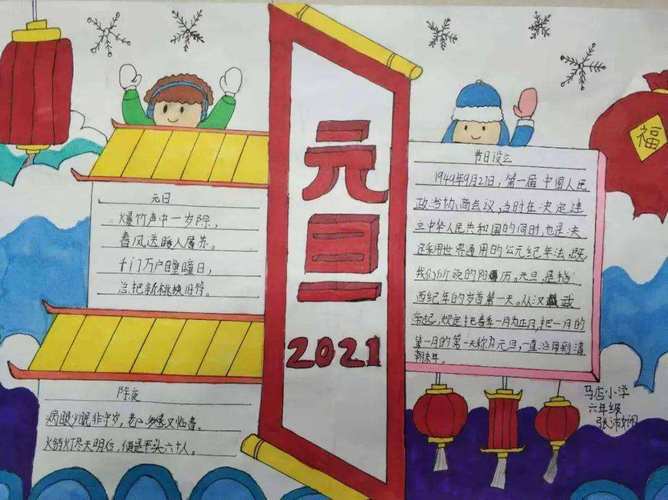 元旦
2021
福
元日
爆竹声中一岁除,
春风送暖入屠苏.
千门万户瞳瞳日,
总把新桃换旧符.
除夜
病眼少眠非守岁,老心多感又临春.
火销灯尽天明后,便是平头六十人.
节日设立
1949年9月27日,第一届中国人民
政治协商会议,当时在决定建
立中华人民共和国的同时,也是决
定采用世界通用的公元纪年法,既
我们所说的阳历。元旦是指
西纪年的岁首第一天。从汉武
帝起,规定把春季一月为正月,把一月的
第一月的第一天称为元旦,一直沿用到清
朝末年。
马店小学
六年级
张沛